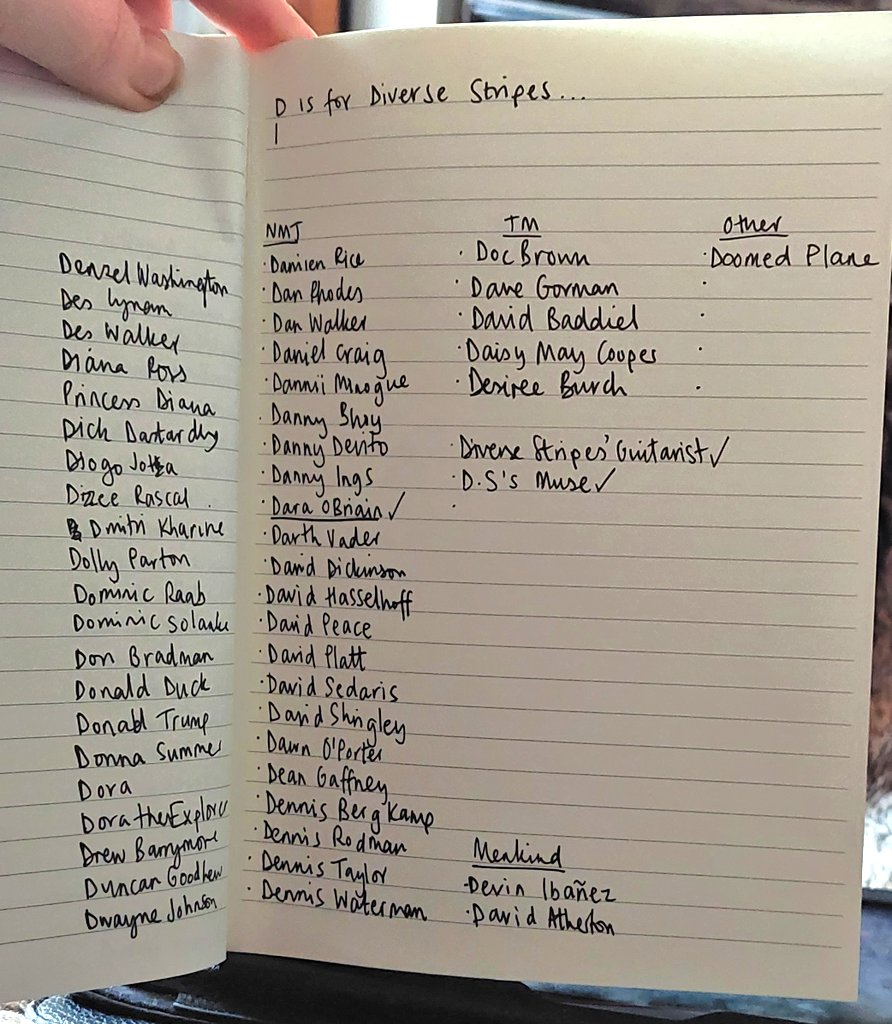 D is for Diverse Stripes...
Denzel Washington
Des Lynam
Des Walker
Diana Ross
Princess Diana
Dick Dastardly
Diogo Jota
Dizzee Rascal
Dmitri Kharine
Dolly Parton
Dominic Raab
Dominic Solanke
Don Bradman
Donald Duck
Donald Trump
Donna Summer
Dora
Dora the Explorer
Drew Barrymore
Duncan Goodhew
Dwayne Johnson
NMJ
· Damien Rice
· Dan Rhodes
· Dan Walker
· Daniel Craig
· Dannii Minogue
· Danny Bhoy
· Danny Devito
· Danny Ings
· Dara OBriain ✓
· Darth Vader
· David Dickinson
· David Hasselhoff
· David Peace
· David Platt
· David Sedaris
· David Shrigley
· Dawn O'Porter
· Dean Gaffney
· Dennis Bergkamp
· Dennis Rodman
· Dennis Taylor
· Dennis Waterman
TM
· Doc Brown
· Dave Gorman
· David Baddiel
· Daisy May Cooper
· Desiree Burch
· Diverse Stripes' Guitarist ✓
· D.S's Muse ✓
Menkind
· Devin Ibañez
· David Atherton
Other
· Doomed Plane